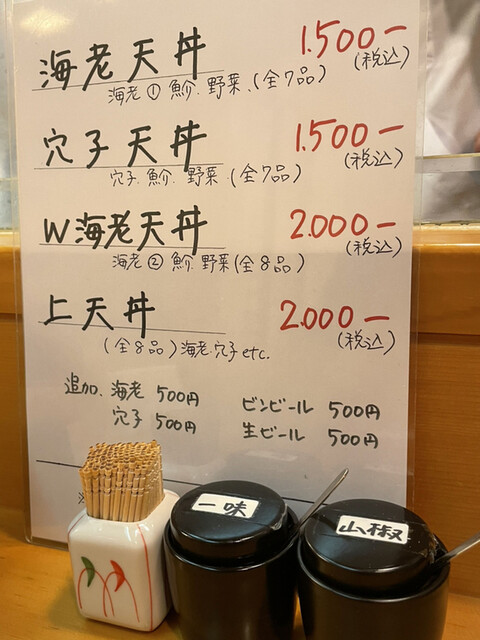 海老天丼 1.500ー
(税込)
海老① 魚介. 野菜、(全7品)
穴子天丼 1.500ー
(税込)
穴子. 魚介. 野菜. (全7品)
W海老天丼 2.000ー
(税込)
海老② 魚介. 野菜 (全8品)
上天丼 2.000ー
(税込)
(全8品) 海老.穴子 etc.
追加. 海老 500円
穴子 500円
ビンビール 500円
生ビール 500円
一味
山椒